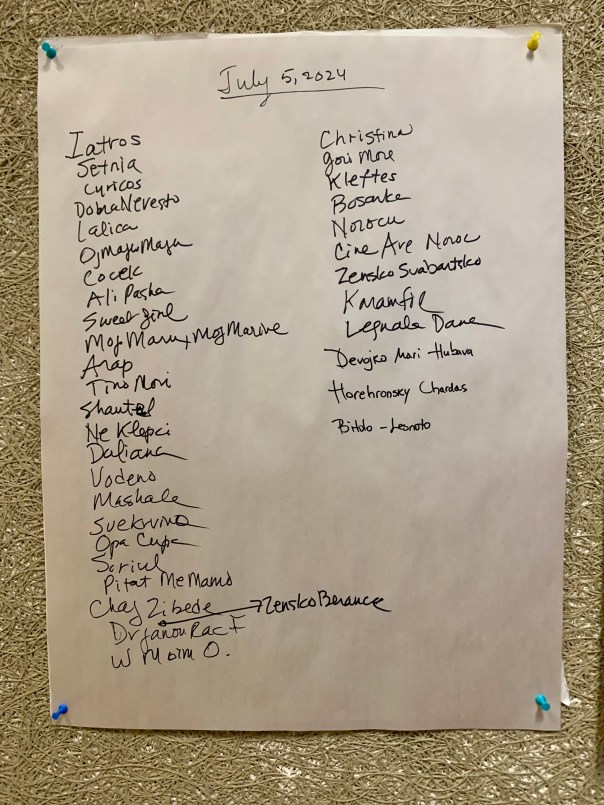 July 5, 2024
Iatros
Setnia
Cyricos
Dobra Nevesto
Lalica
Oj Maju Maju
Cocek
Ali Pasha
Sweet Girl
Moj Maru + Moj Marine
Arap
Tino Mori
Ne Klepci
Daliana
Vodeno
Mashala
Svekrvino
Opa Cupa
Soriul
Pitat Me Mamo
Chaj Zibede → Zensko Berance
W Moim O.
Christina
Kleftes
Bosarka
Norocu
Cine Are Noroc
Zensko Svabartsko
Legnala Dana
Devojko Mari Hubava
Horehronsky Chardas
Bitolo - Lesnoto